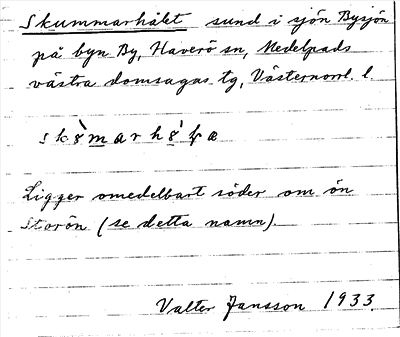 Skummarhålet sund i sjön Bysjön
på byn By, Haverö sn, Medelpads
västra domsagas tg, Västernorrl. l.
Ligger omedelbart söder om ön
Storön (se detta namn).
Valter Jansson 1933.